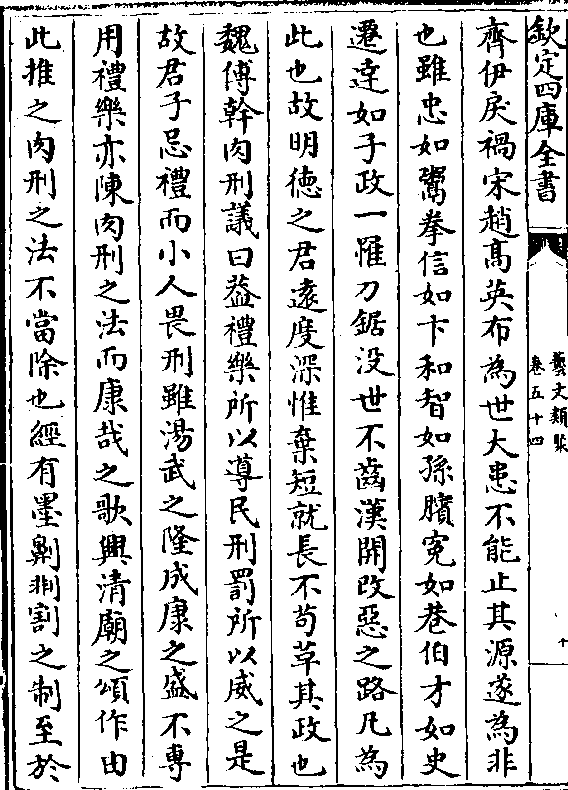 欽定四庫全書
藝文類聚
卷五十四
十
齊伊戾禍宋趙髙英布為世大患不能止其源遂為非
也雖忠如鬻拳信如卞和智如孫臏寃如巷伯才如史
遷達如子政一罹刀鋸没世不齒漢開改惡之路凡為
此也故明徳之君逺度深惟棄短就長不茍革其政也
魏傅幹肉刑議曰葢禮樂所以導民刑罰所以威之是
故君子忌禮而小人畏刑雖湯武之隆成康之盛不專
用禮樂亦陳肉刑之法而康哉之歌興清廟之頌作由
此推之肉刑之法不當除也經有墨劓剕割之制至於